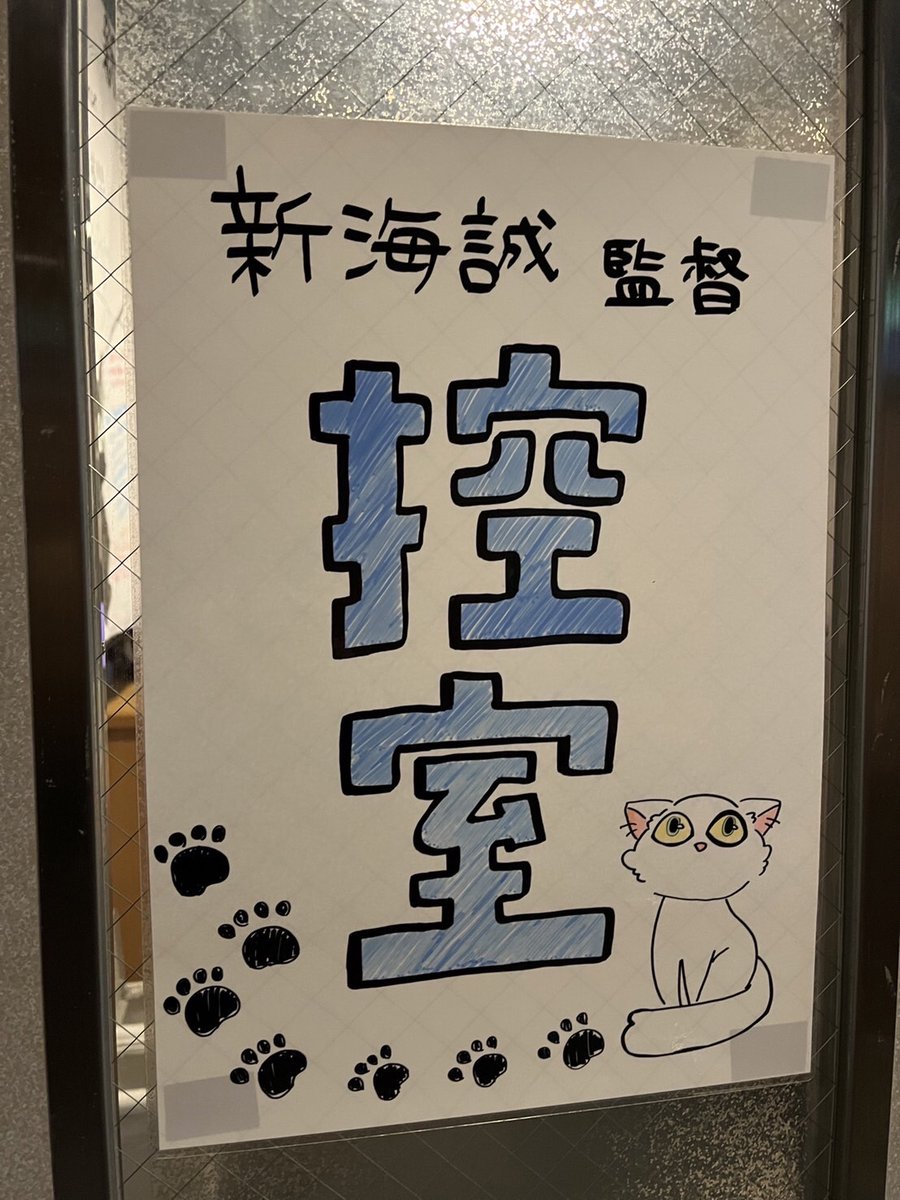 新海誠 監督
控
室